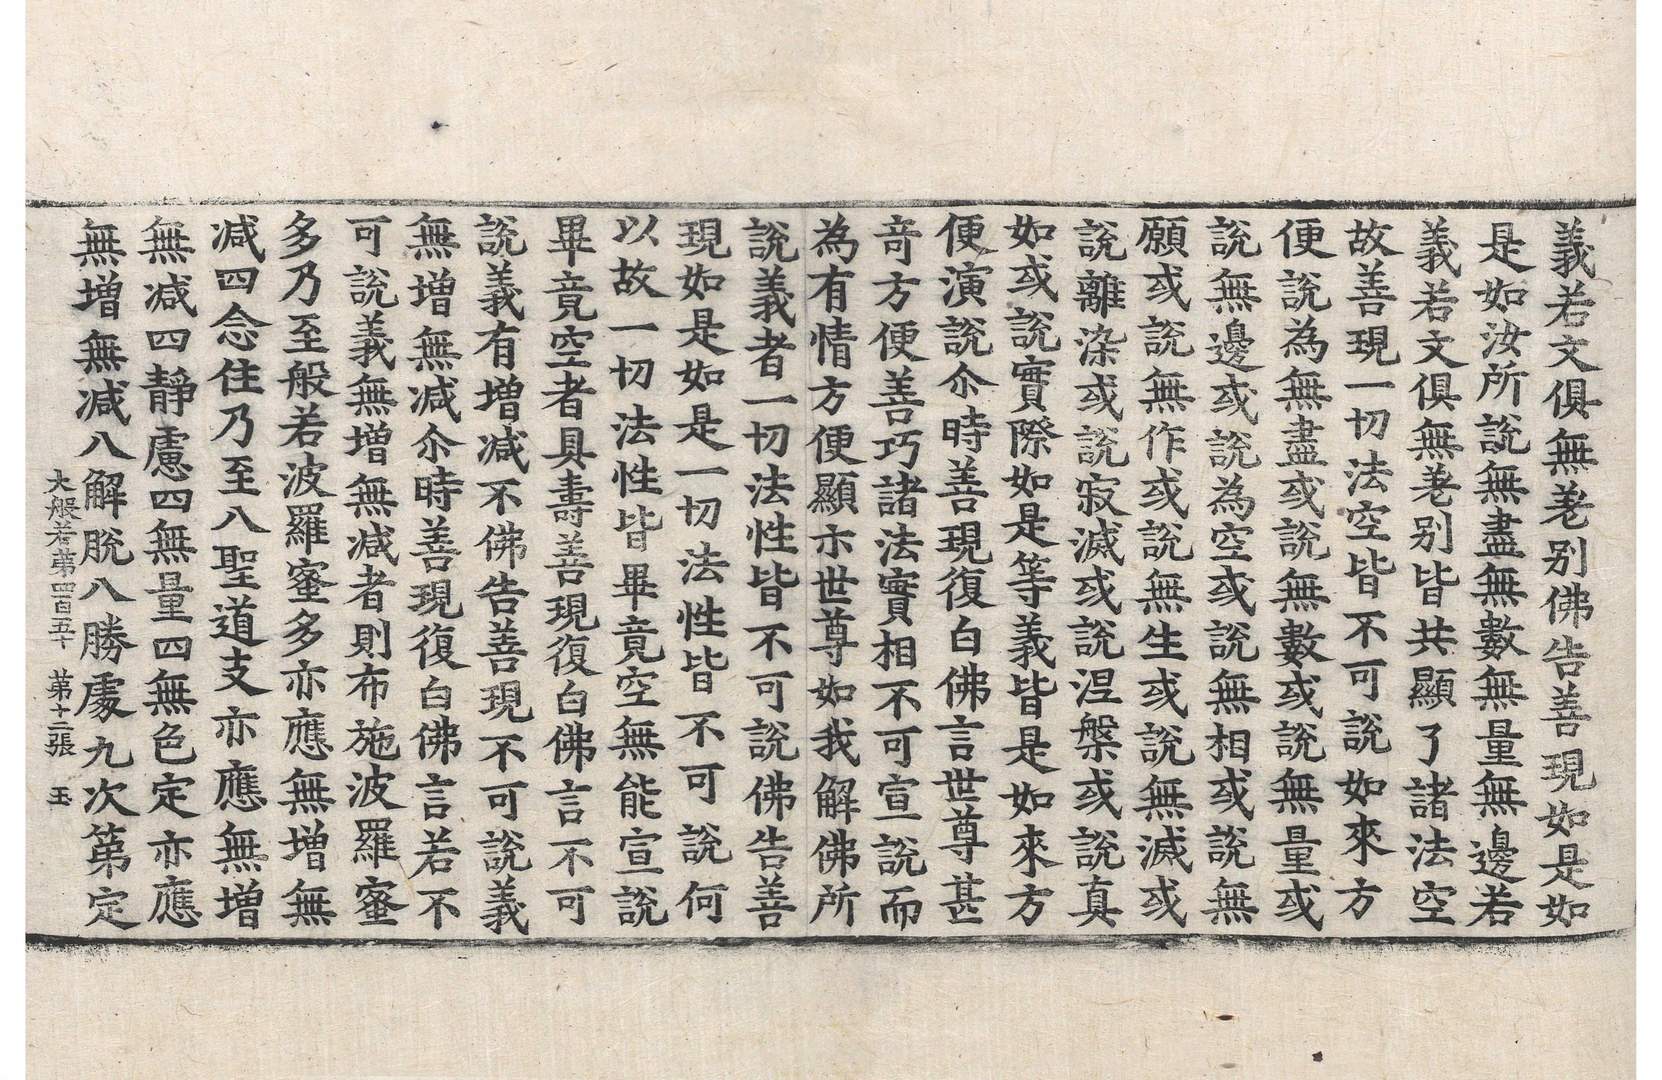 義若文俱無差别佛告善現如是如
是如汝所說無盡無數無量無邊若
義若文俱無差别皆共顯了諸法空
故善現一切法空皆不可說如來方
便說為無盡或說無數或說無量或
說無邊或說為空或說無相或說無
願或說無作或說無生或說無滅或
說離染或說寂滅或說涅槃或說真
如或說實際如是等義皆是如來方
便演說尒時善現復白佛言世尊甚
竒方便善巧諸法實相不可宣說而
為有情方便顯示世尊如我解佛所
說義者一切法性皆不可說佛告善
現如是如是一切法性皆不可說何
以故一切法性皆畢竟空無能宣說
畢竟空者具壽善現復白佛言不可
說義有增減不佛告善現不可說義
無增無減尒時善現復白佛言若不
可說義無增無減者則布施波羅蜜
多乃至般若波羅蜜多亦應無增無
減四念住乃至八聖道支亦應無增
無減四靜慮四無量四無色定亦應
無增無減八解脫八勝處九次第定
大般若第四百五十　第十二張　玉